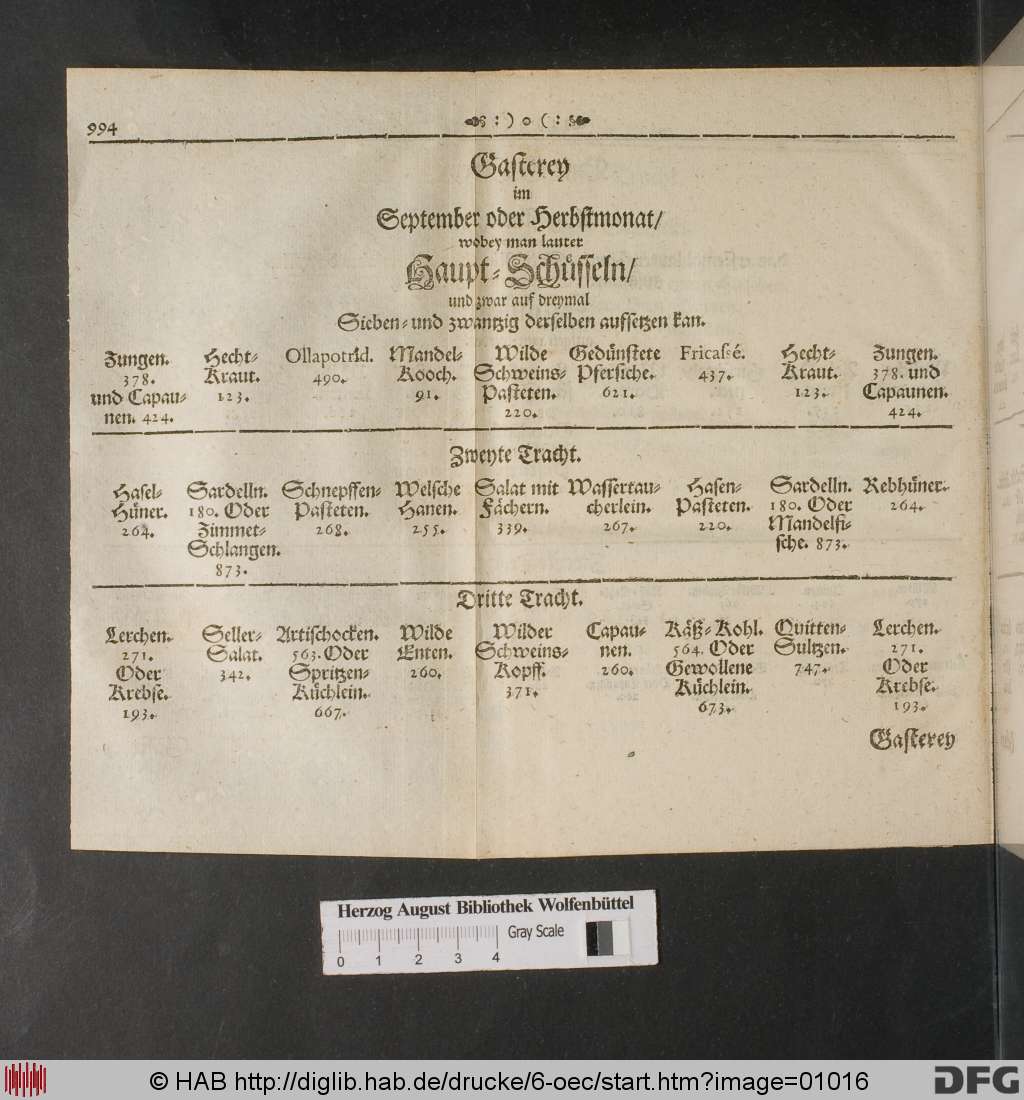 994
: ) o ( :
Gasterey
im
September oder Herbstmonat/
wobey man lauter
Haupt-Schüsseln/
und zwar auf dreymal
Sieben- und zwantzig derselben aufsetzen kan.
Zungen. 378. und Capau-
nen. 424.
Hecht-
Kraut.
123.
Ollapotrid.
490.
Mandel-
Kooch.
91.
Wilde
Schweins-
Pasteten.
220.
Gedünstete
Pfersiche.
621.
Fricassé.
437.
Hecht-
Kraut.
123.
Zungen.
378. und
Capaunen.
424.
Zweyte Tracht.
Hasel-
Hüner.
264.
Sardelln.
180. Oder
Zimmet-
Schlangen.
873.
Schnepffen-
Pasteten.
268.
Welsche
Hanen.
255.
Salat mit
Fächern.
339.
Wassertau-
cherlein.
267.
Hasen-
Pasteten.
220.
Sardelln.
180. Oder
Mandelfi-
sche. 873.
Rebhüner.
264.
Dritte Tracht.
Lerchen.
271.
Oder
Krebse.
193.
Seller-
Salat.
342.
Artischocken.
563. Oder
Spritzen-
Küchlein.
667.
Wilde
Enten.
260.
Wilder
Schweins-
Kopff.
371.
Capau-
nen.
260.
Käß-Kohl.
564. Oder
Gewollene
Küchlein.
673.
Quitten-
Sultzen.
747.
Lerchen.
271.
Oder
Krebse.
193.
Gasterey
Herzog August Bibliothek Wolfenbüttel
Gray Scale
0 1 2 3 4
© HAB http://diglib.hab.de/drucke/6-oec/start.htm?image=01016
DFG